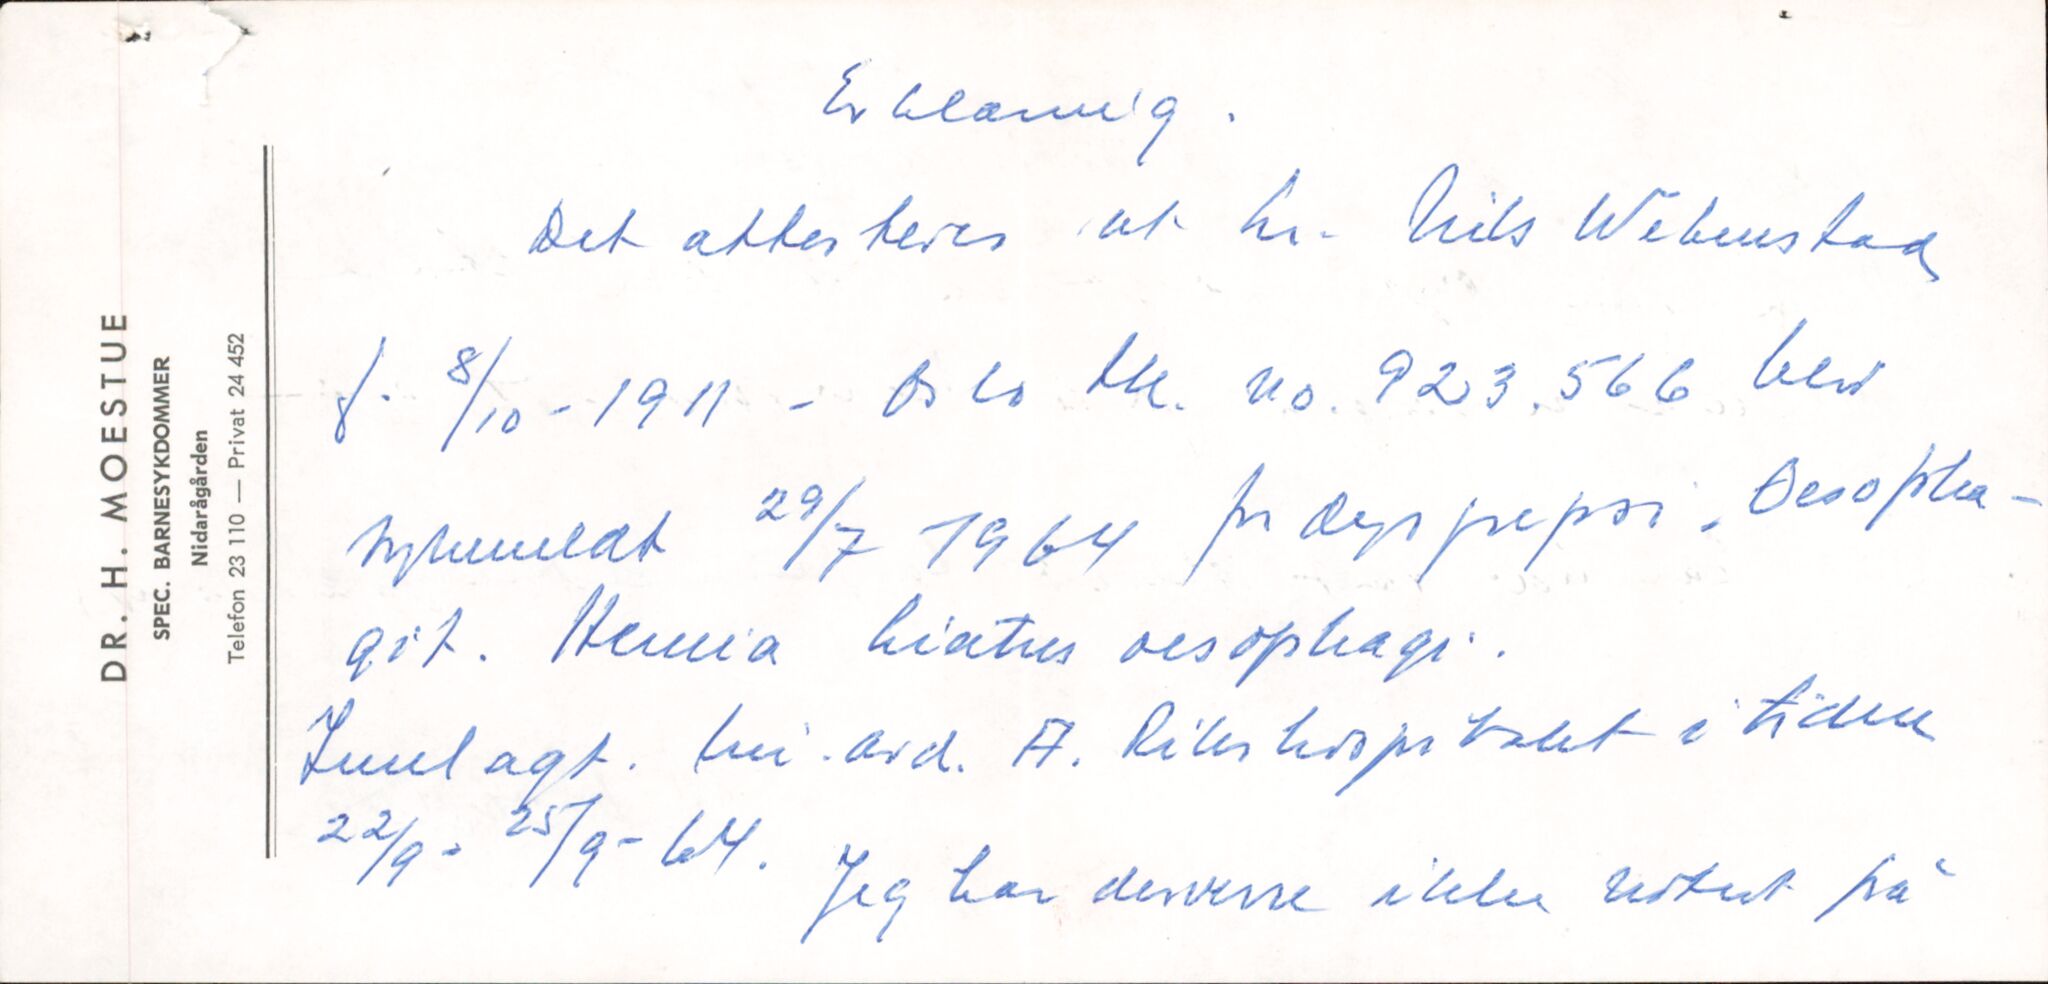 DR. H. MOESTUE
SPEC. BARNESYKDOMMER
Nidarågården
Telefon 23 110 — Privat 24 452
Erklæring.
Det attesteres at hr. Nils
f. 8/10 - 1911 - Oslo tk. no. 923.566 blev
sykmeldt 29/7 1964 for dyspepsi. Oesopha-
git. Hernia hiatus oesophagi.
Innlagt. avd. A. Rikshospitalet i tiden
22/9 - 25/9 - 64. Jeg har desverre ikke notert på